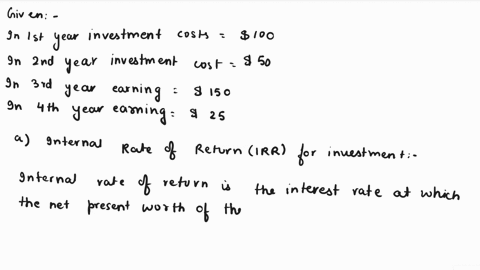 Given:-
In 1st year investment costs = $100
In 2nd year investment cost = $50
In 3rd year earning = $150
In 4th year earning = $25
a) Internal Rate of Return (IRR) for investment:-
Internal rate of return is the interest rate at which
the net present worth of the